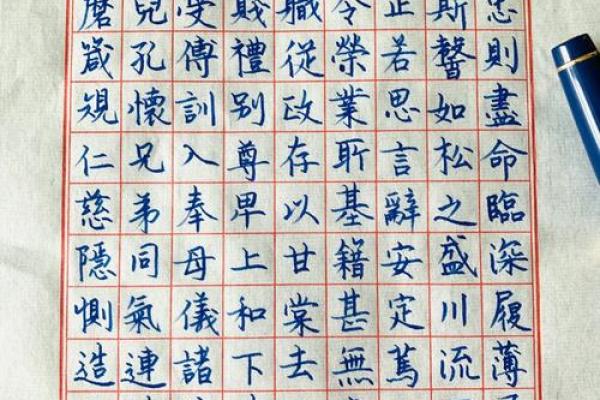 忠則盡命臨深履薄
斯馨如松之盛川流
止若思言辭安定篤
令榮業所基籍甚無
職從政存以甘棠去
賤禮别尊卑上和下
受傅訓入奉母儀諸
兒孔懷兄弟同氣連
磨箴規仁慈隱惻造